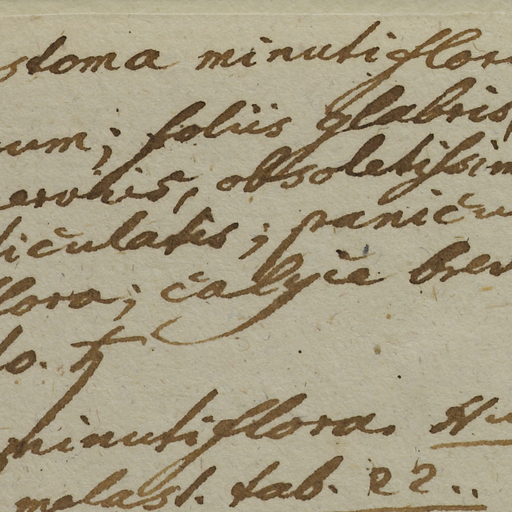 stoma minutiflor
um; foliis glabris,
erviis, obsoletissim
iculatis; panicu
flora; calyce brev
lo. ♄
minutiflora. Hu
melast. tab. 22..